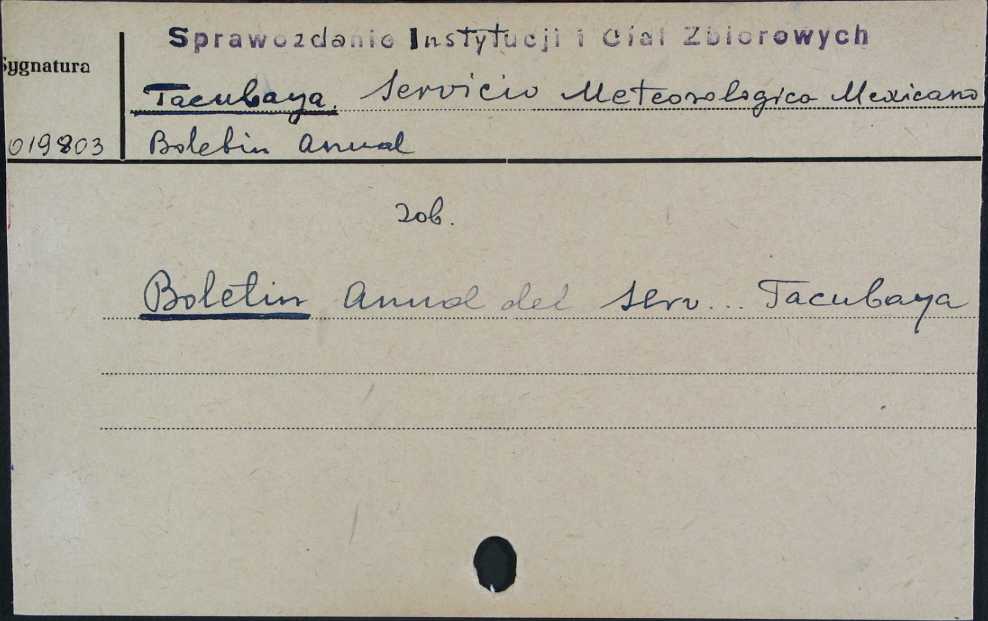 Sprawozdanie Instytucji i Ciał Zbiorowych
Sygnatura
Tacubaya. Servicio Meteorologico Mexicano
019803 Boletin Anual
zob.
Boletin Anual del Serv... Tacubaya